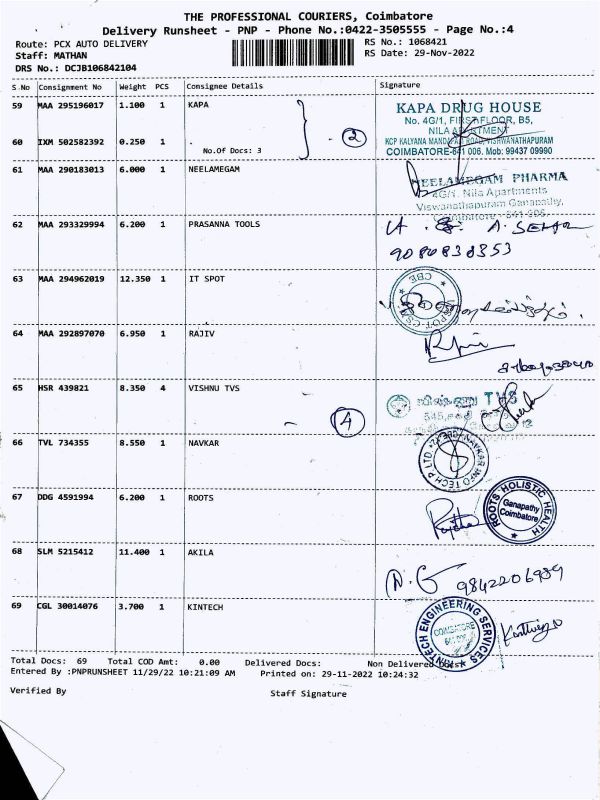 THE PROFESSIONAL COURIERS, Coimbatore
Delivery Runsheet - PNP - Phone No.:0422-3505555 - Page No.:4
Route: PCX AUTO DELIVERY RS No.: 1068421
Staff: MATHAN RS Date: 29-Nov-2022
DRS No.: DCJB106842104
S.No Consignment No Weight PCS Consignee Details Signature
59 MAA 295196017 1.100 1 KAPA
KAPA DRUG HOUSE
No. 4G/1, FIRST FLOOR, B5,
NILA APARTMENT
60 IXM 502582392 0.250 1 . No.Of Docs: 3 2
COIMBATORE-641 006. Mob: 99437 09990
61 MAA 290183013 6.000 1 NEELAMEGAM
NEELAMEGAM PHARMA
4G/1, Nila Apartments
Viswanathapuram Ganapathy,
62 MAA 293329994 6.200 1 PRASANNA TOOLS
9080838353
63 MAA 294962019 12.350 1 IT SPOT
CBE
64 MAA 292897070 6.950 1 RAJIV
65 HSR 439821 8.350 4 VISHNU TVS
TVS
4
66 TVL 734355 8.550 1 NAVKAR
NAVKAR INFO TECH P LTD
67 DDG 4591994 6.200 1 ROOTS
ROOTS HOLISTIC HEALTH
Ganapathy
Coimbatore
68 SLM 5215412 11.400 1 AKILA
N.G 9842206989
69 CGL 30014076 3.700 1 KINTECH
KINTECH ENGINEERING SERVICES
COIMBATORE
Total Docs: 69 Total COD Amt: 0.00 Delivered Docs: Non Delivered Docs:
Entered By :PNPRUNSHEET 11/29/22 10:21:09 AM Printed on: 29-11-2022 10:24:32
Verified By Staff Signature